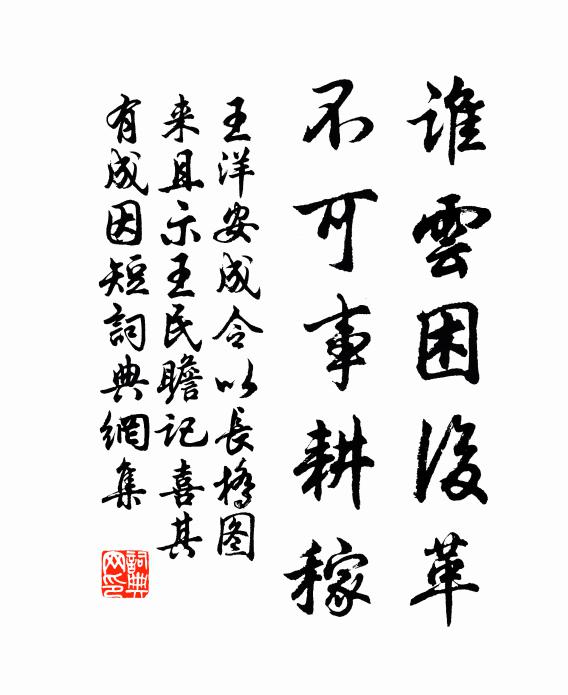 誰雲困後革
不可事耕稼
王洋安成令以長橋图
来且示王民瞻记喜其
有成因短詞典網集
詞典网印